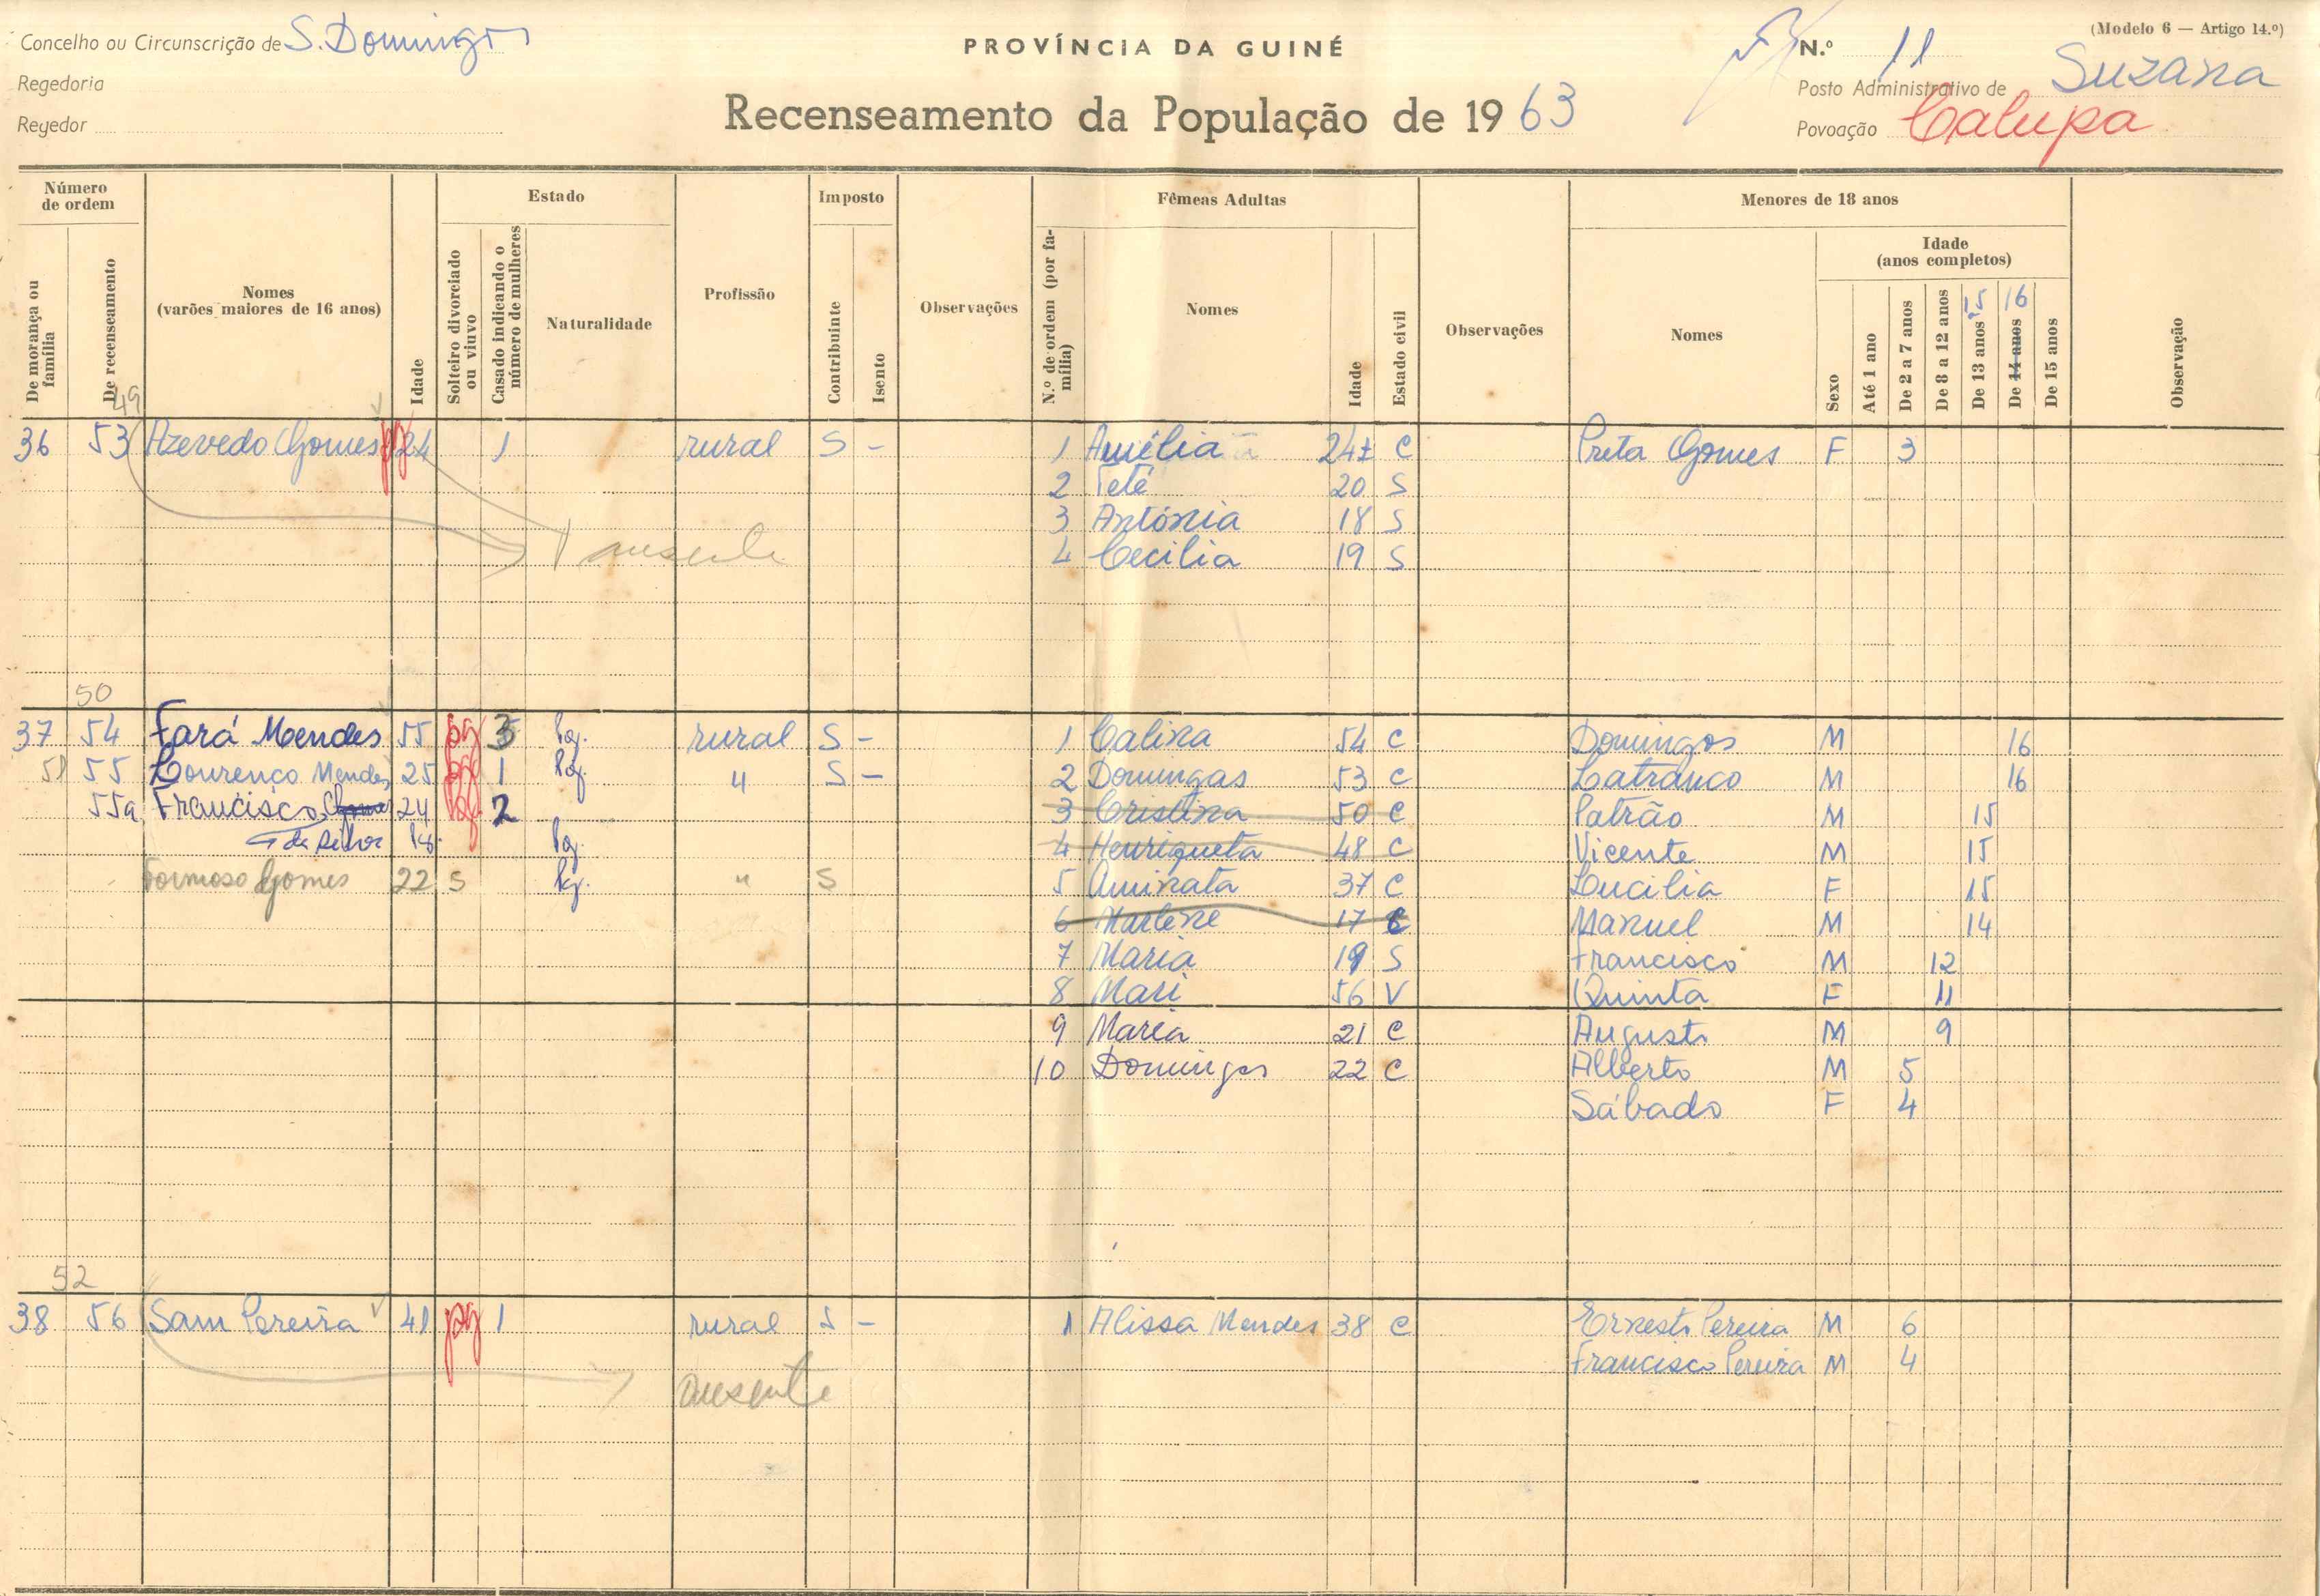 (Modelo 6 — Artigo 14.º)
Concelho ou Circunscrição de S. Domingos
PROVÍNCIA DA GUINÉ
N.º 11
Regedoria
Posto Administrativo de Suzana
Regedor
Recenseamento da População de 1963
Povoação Calupa
Número de ordem
Estado
Imposto
Fêmeas Adultas
Menores de 18 anos
De morança ou família
De recenseamento
Nomes (varões maiores de 16 anos)
Idade
Solteiro divorciado ou viuvo
Casado indicando o número de mulheres
Naturalidade
Profissão
Contribuinte
Isento
Observações
N.º de ordem (por família)
Nomes
Idade
Estado civil
Observações
Nomes
Sexo
Idade (anos completos)
Até 1 ano
De 2 a 7 anos
De 8 a 12 anos
De 13 anos 15
De 14 anos 16
De 15 anos
Observação
49
36 53 Azevedo Gomes pg 24 1 rural S - 1 Amélia 24 C Preta Gomes F 3
2 Teté 20 S
3 Antónia 18 S
ausente 4 Cecilia 19 S
50
37 54 Fará Mendes 55 pg 3 Pg. rural S - 1 Calina 54 C Domingos M 16
51 55 Lourenço Mendes 25 pg 1 Pg. " S - 2 Domingas 53 C Lafranco M 16
55a Francisco Gomes 24 pg 2 3 Cristina 50 C Patrão M 15
da Silva Pg. 4 Henriqueta 48 C Vicente M 15
Formoso Gomes 22 S Pg. " S 5 Aminata 37 C Lucilia F 15
6 Marlene 17 C Manuel M 14
7 Maria 19 S Francisco M 12
8 Mari 56 V Quinta F 11
9 Maria 21 C Augusto M 9
10 Domingas 22 C Alberto M 5
Sábado F 4
52
38 56 Sam Pereira 41 pg 1 rural S - 1 Alissa Mendes 38 C Ernesto Pereira M 6
Francisco Pereira M 4
ausente